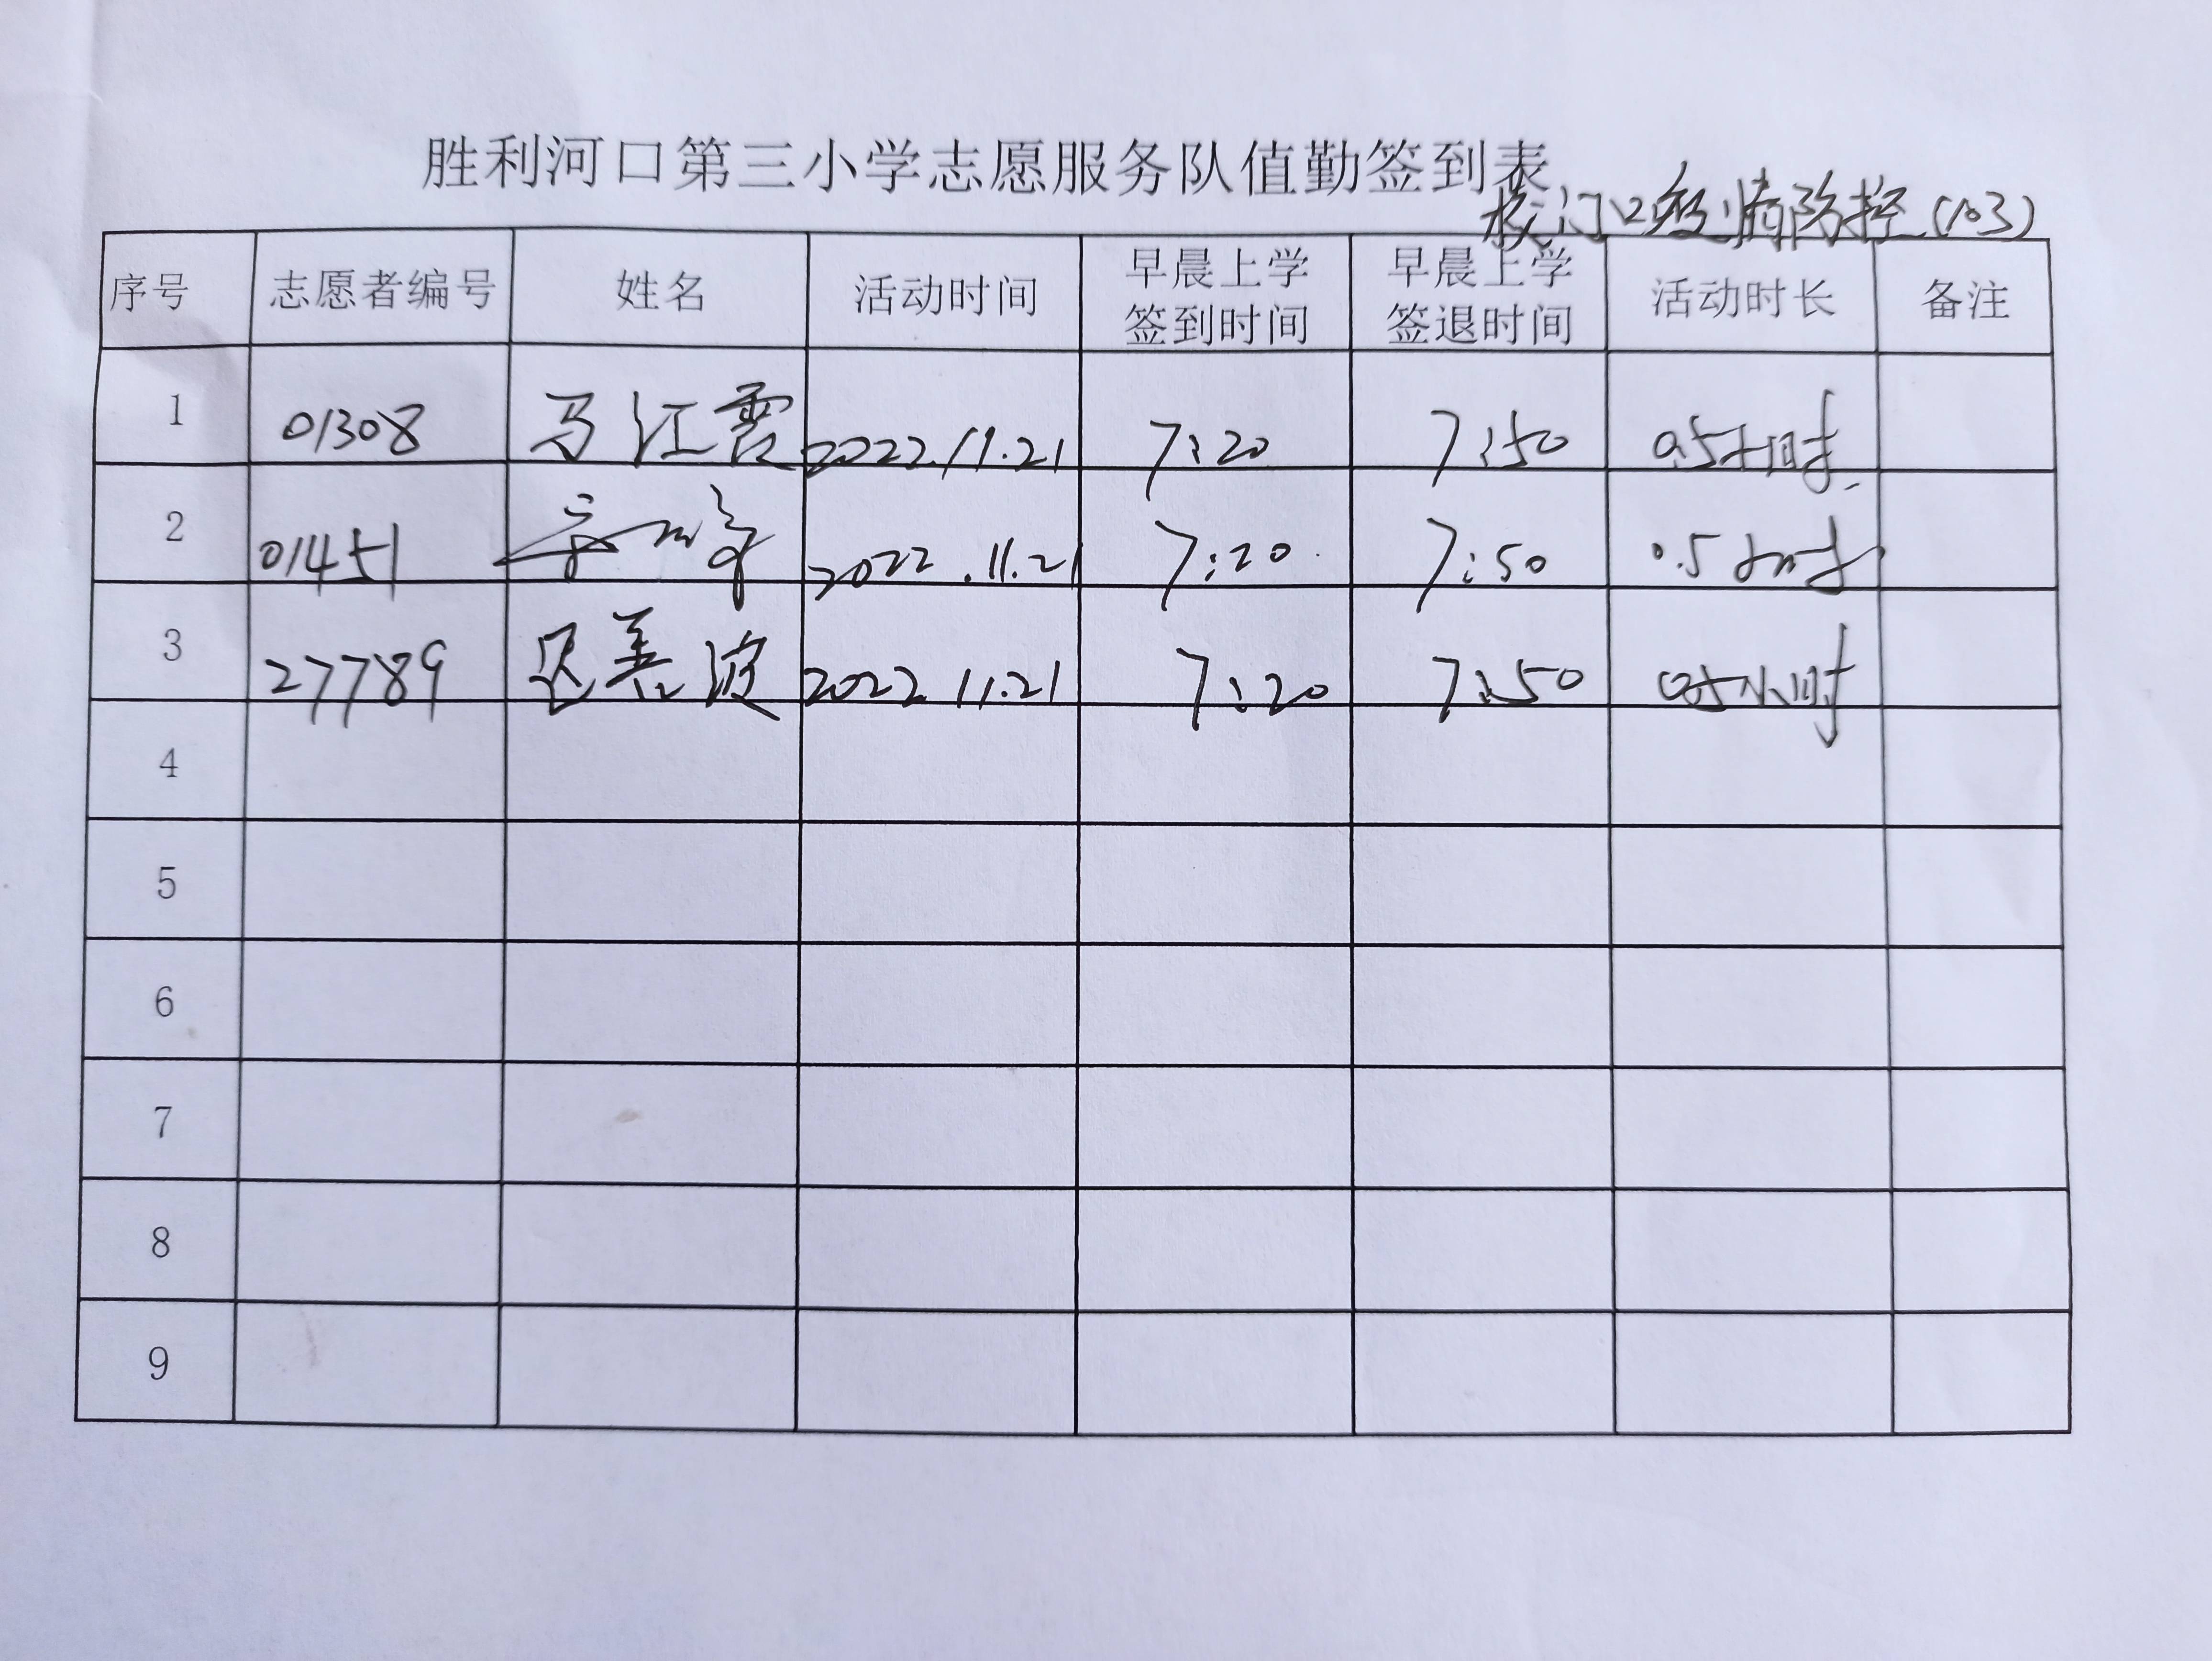 胜利河口第三小学志愿服务队值勤签到表
校门口疫情防控(103)
序号 志愿者编号 姓名 活动时间 早晨上学签到时间 早晨上学签退时间 活动时长 备注
1 01308 马江霞 2022.11.21 7:20 7:50 0.5小时
2 01451 2022.11.21 7:20 7:50 0.5小时
3 27789 迟美波 2022.11.21 7:20 7:50 0.5小时
4
5
6
7
8
9